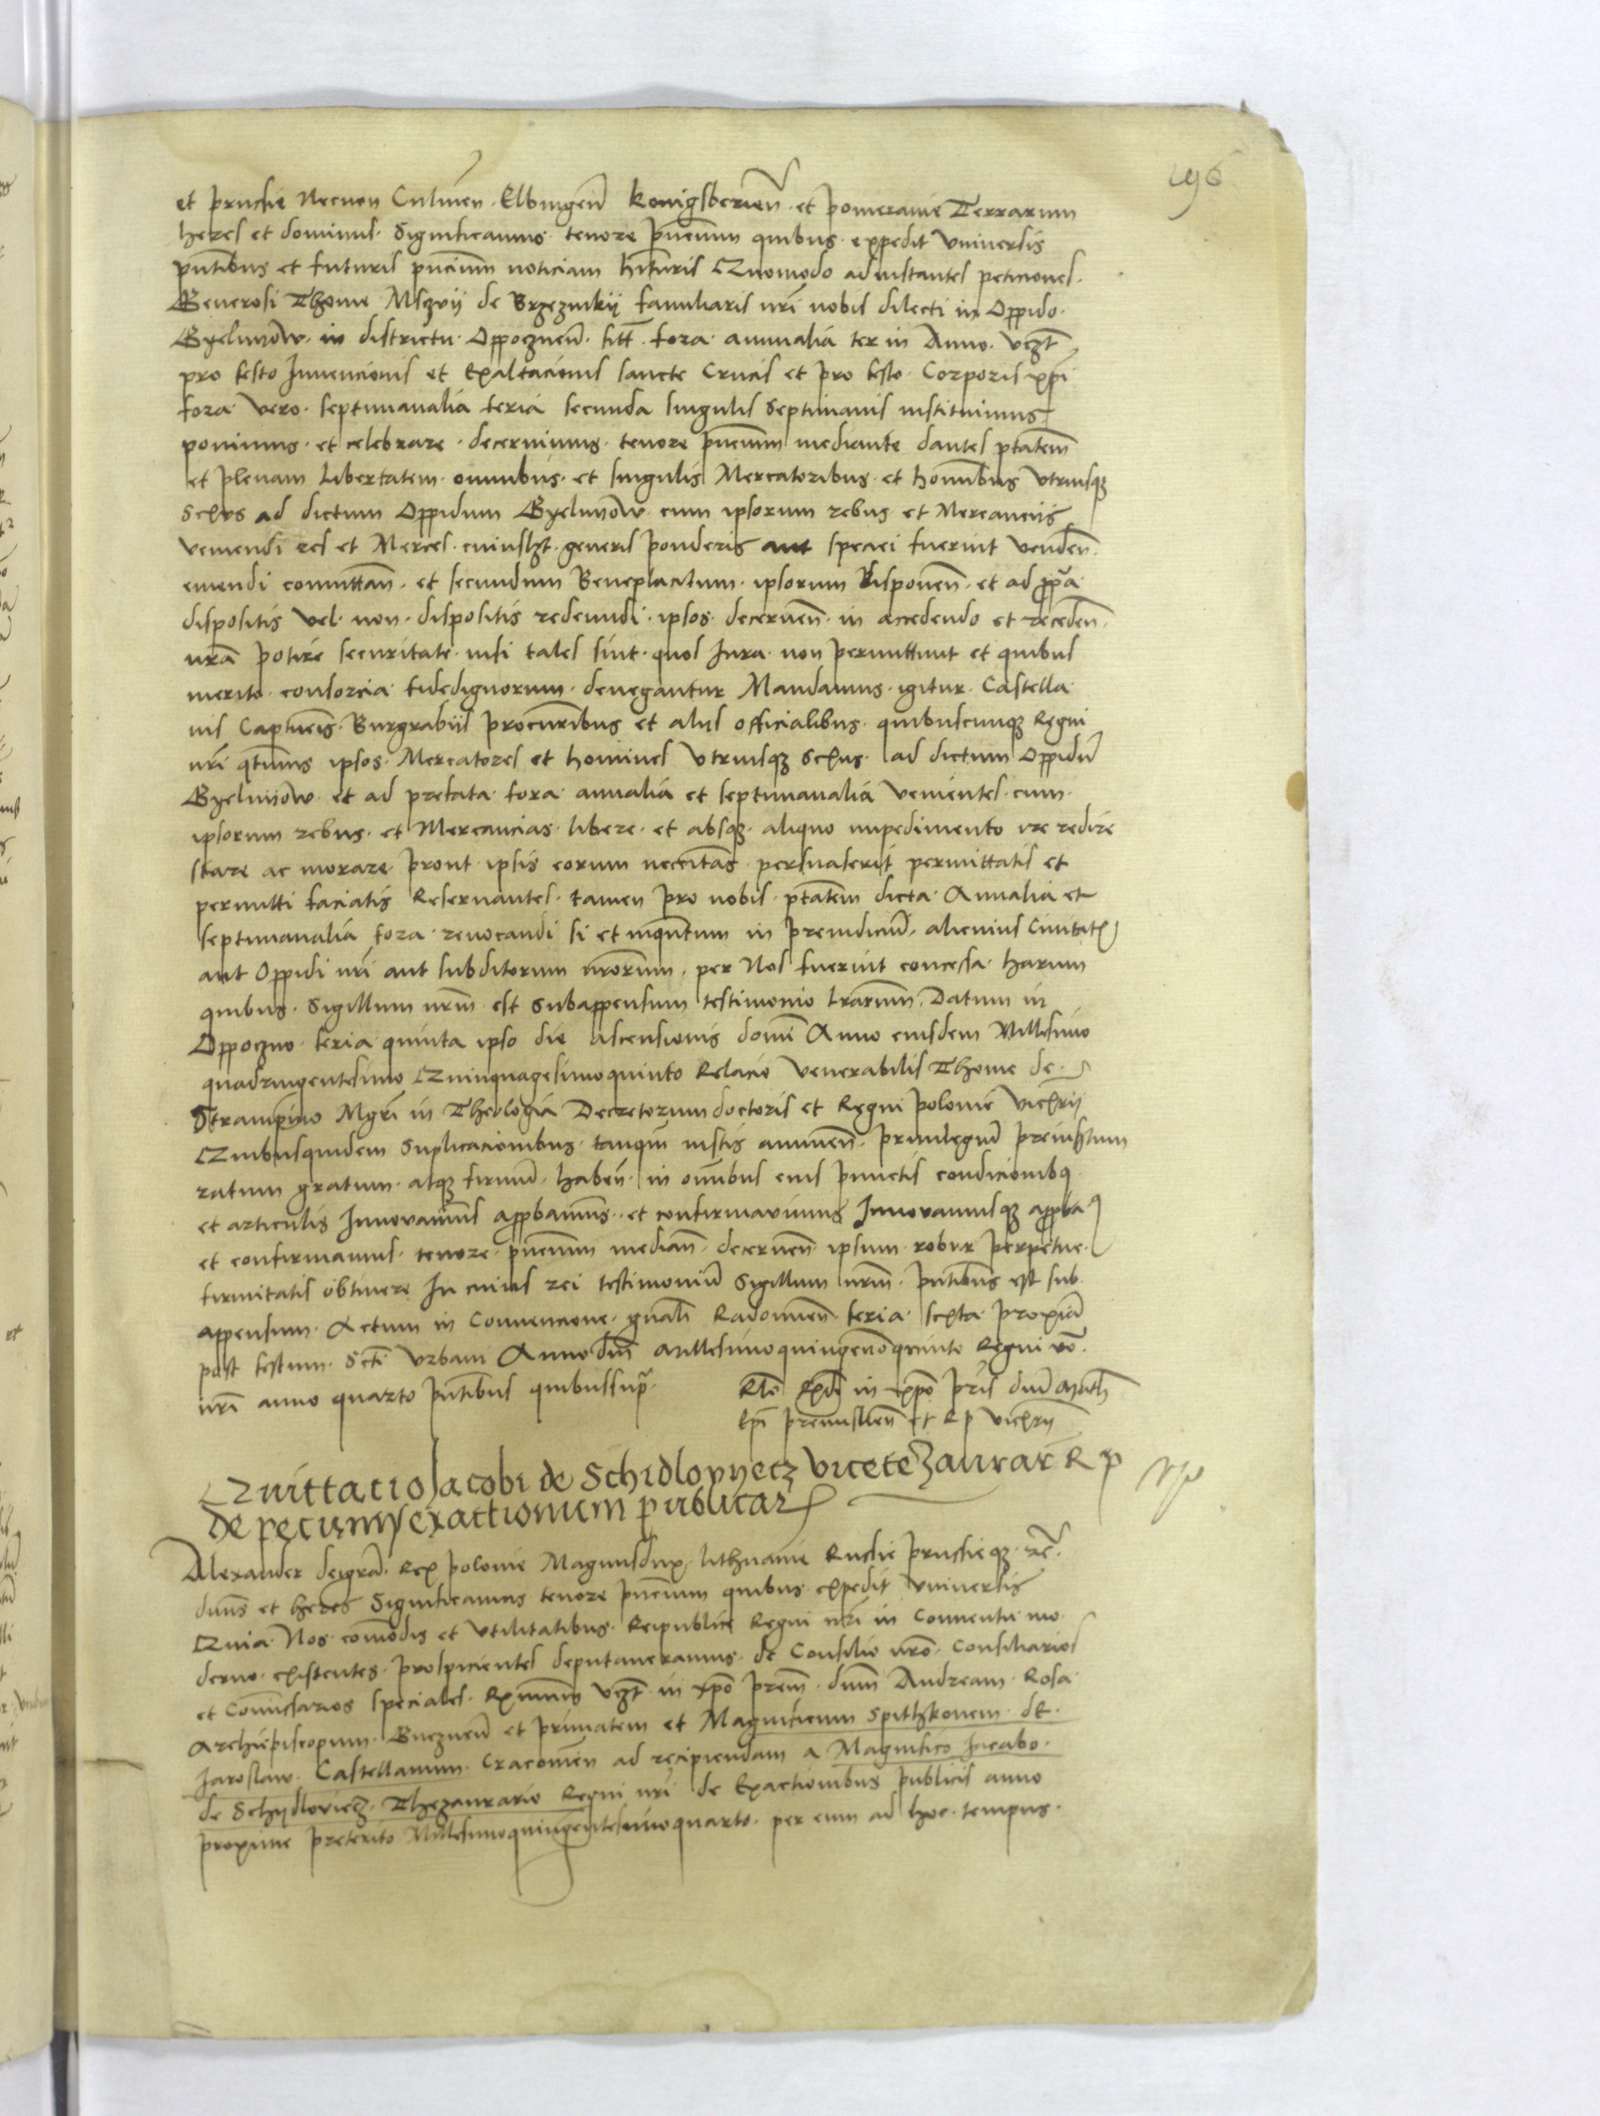 196
et prusie Necnon Culmen. Elbingen̄ Konigsberien̄. et pomeranie Terrarum
heres et dominus. Significamus tenore pn̄cium quibus expedit vniuersis
pn̄tibus et futuris pn̄cium noticiam hituris Quomodo ad instantes peticiones.
Generosi Thome Msczuij de Brzezinkij familiaris nr̄i nobis dilecti in Oppido.
Gyelnyow. in districtu Oppocznen̄. sitt̄. fora annualia ter in Anno. vcz̄t
pro festo Innencionis et Exaltacionis sancte Crucis et pro festo Corporis xp̄i
fora vero. septimanalia feria secunda singulis Septimanis instituimus
ponimus. et celebrare. decernimus. tenore pn̄cium mediante dantes ptatem̄
et plenam Libertatem. omnibus. et singulis Mercatoribus et hominibus Vtriusqz
Sexus ad dictum Oppidum Gyelnyow cum ipsorum rebus et Mercanciis
veniendi res et Merces. cuiuslzt. generis ponderis aut speciei fuerint venden̄.
emendi comittan̄. et secundum Beneplacitum. ipsorum disponen̄. et ad ppa
dispositis vel. non. dispositis redeundi. ipsos. decernen̄. in accedendo et receden̄.
nr̄a potire securitate nisi tales sint. quos Iura non permittunt et quibus
merito. consorcia fidedignorum. denegantur Mandamus. igitur. Castella
nis Capitneis. Burgrabiis Procur̄ribus et aliis officialibus. quibuscumqz Regni
nr̄i qt̄nus ipsos. Mercatores et homines Vtriusqz Sexus. ad dictum Oppidū
Gyelnyow. et ad prefata fora annalia et septimanalia venientes. cum
ipsorum rebus. et Mercancias. libere. et absqz aliquo impedimento ire redire
stare ac morare. prout ipsis eorum necc̄itas persuaserit permittatis et
permitti faciatis Reseruantes. tamen pro nobis ptatem̄ dicta Annalia et
septimanalia fora reuocandi si et inqn̄tum in preiudiciū. alicuius Ciuitatis
aut Oppidi nr̄i aut subditorum nr̄orum. per Nos fuerint concessa. harum
quibus. Sigillum nr̄m est subappensum testimonio lr̄arum. Datum in
Oppoczno feria quinta ipso die ascensionis domi Anno eiusdem Millesimo
quadringentesimo Quinquagesimoquinto Relacio venerabilis Thome de
Strampino Mgr̄i in Theologia Decretorum doctoris et Regni polonie Vicxrij
Quibusquidem Suplicacionibus. tanqm̄ iustis annuen̄. priuilegiū preinsertum
ratum gratum. atqz firmū. haben̄. in omnibus eius punctis condicionibqz
et articulis Innouauimus approbauimus. et confirmauimus Innouamusqz approba
et confirmamus. tenore. pn̄cium median̄. decernen̄ ipsum robur perpetue.
firmitatis obtinere In cuius rei testimoniū Sigillum nr̄m. pn̄tibus est sub
appensum. Actum in Conuencione. gn̄ali Radomien̄ feria sexta proxima
post festum. Scti Vrbani Anno dn̄i Millesimoquingen̄oquinto Regni vō.
nr̄i anno quarto pn̄tibus quibussupra. Rlō Rxdi in xpō pris dn̄i Math̄
Epi premislien̄ et Rp vicxrij
Quittacio Jacobi de Schidlovyecz vicetezaurar R p
de pecunijs exactionum publicar
Alexander deigrā. Rex polonie Magnusdux. lithuanie Rusie prusieqz rc̄.
dn̄us et heres Significamus tenore pn̄cium quibus expedit vniuersis
Quia Nos comodis et vtilitatibus. Reipublice Regni nr̄i in Conuentu mo
derno existentes. prospicientes deputaueramus. de Consilio nr̄o. Consiliarios
et Comissarios speciales. Rximum vcz̄t. in xpō prem. dn̄m Andream Rosa
Archiepiscopum. Gneznen̄ et primatem et Magnificum Spithkonem de.
Jaroslaw. Castellanum Cracouien̄ ad recipiendam a Magnifico Jacabo.
de Schydloviecz. Thezaurario Regni nr̄i de Exactionibus publicis anno
proxime preterito Millesimoquingentesimoquarto. per eum ad hoc tempus.